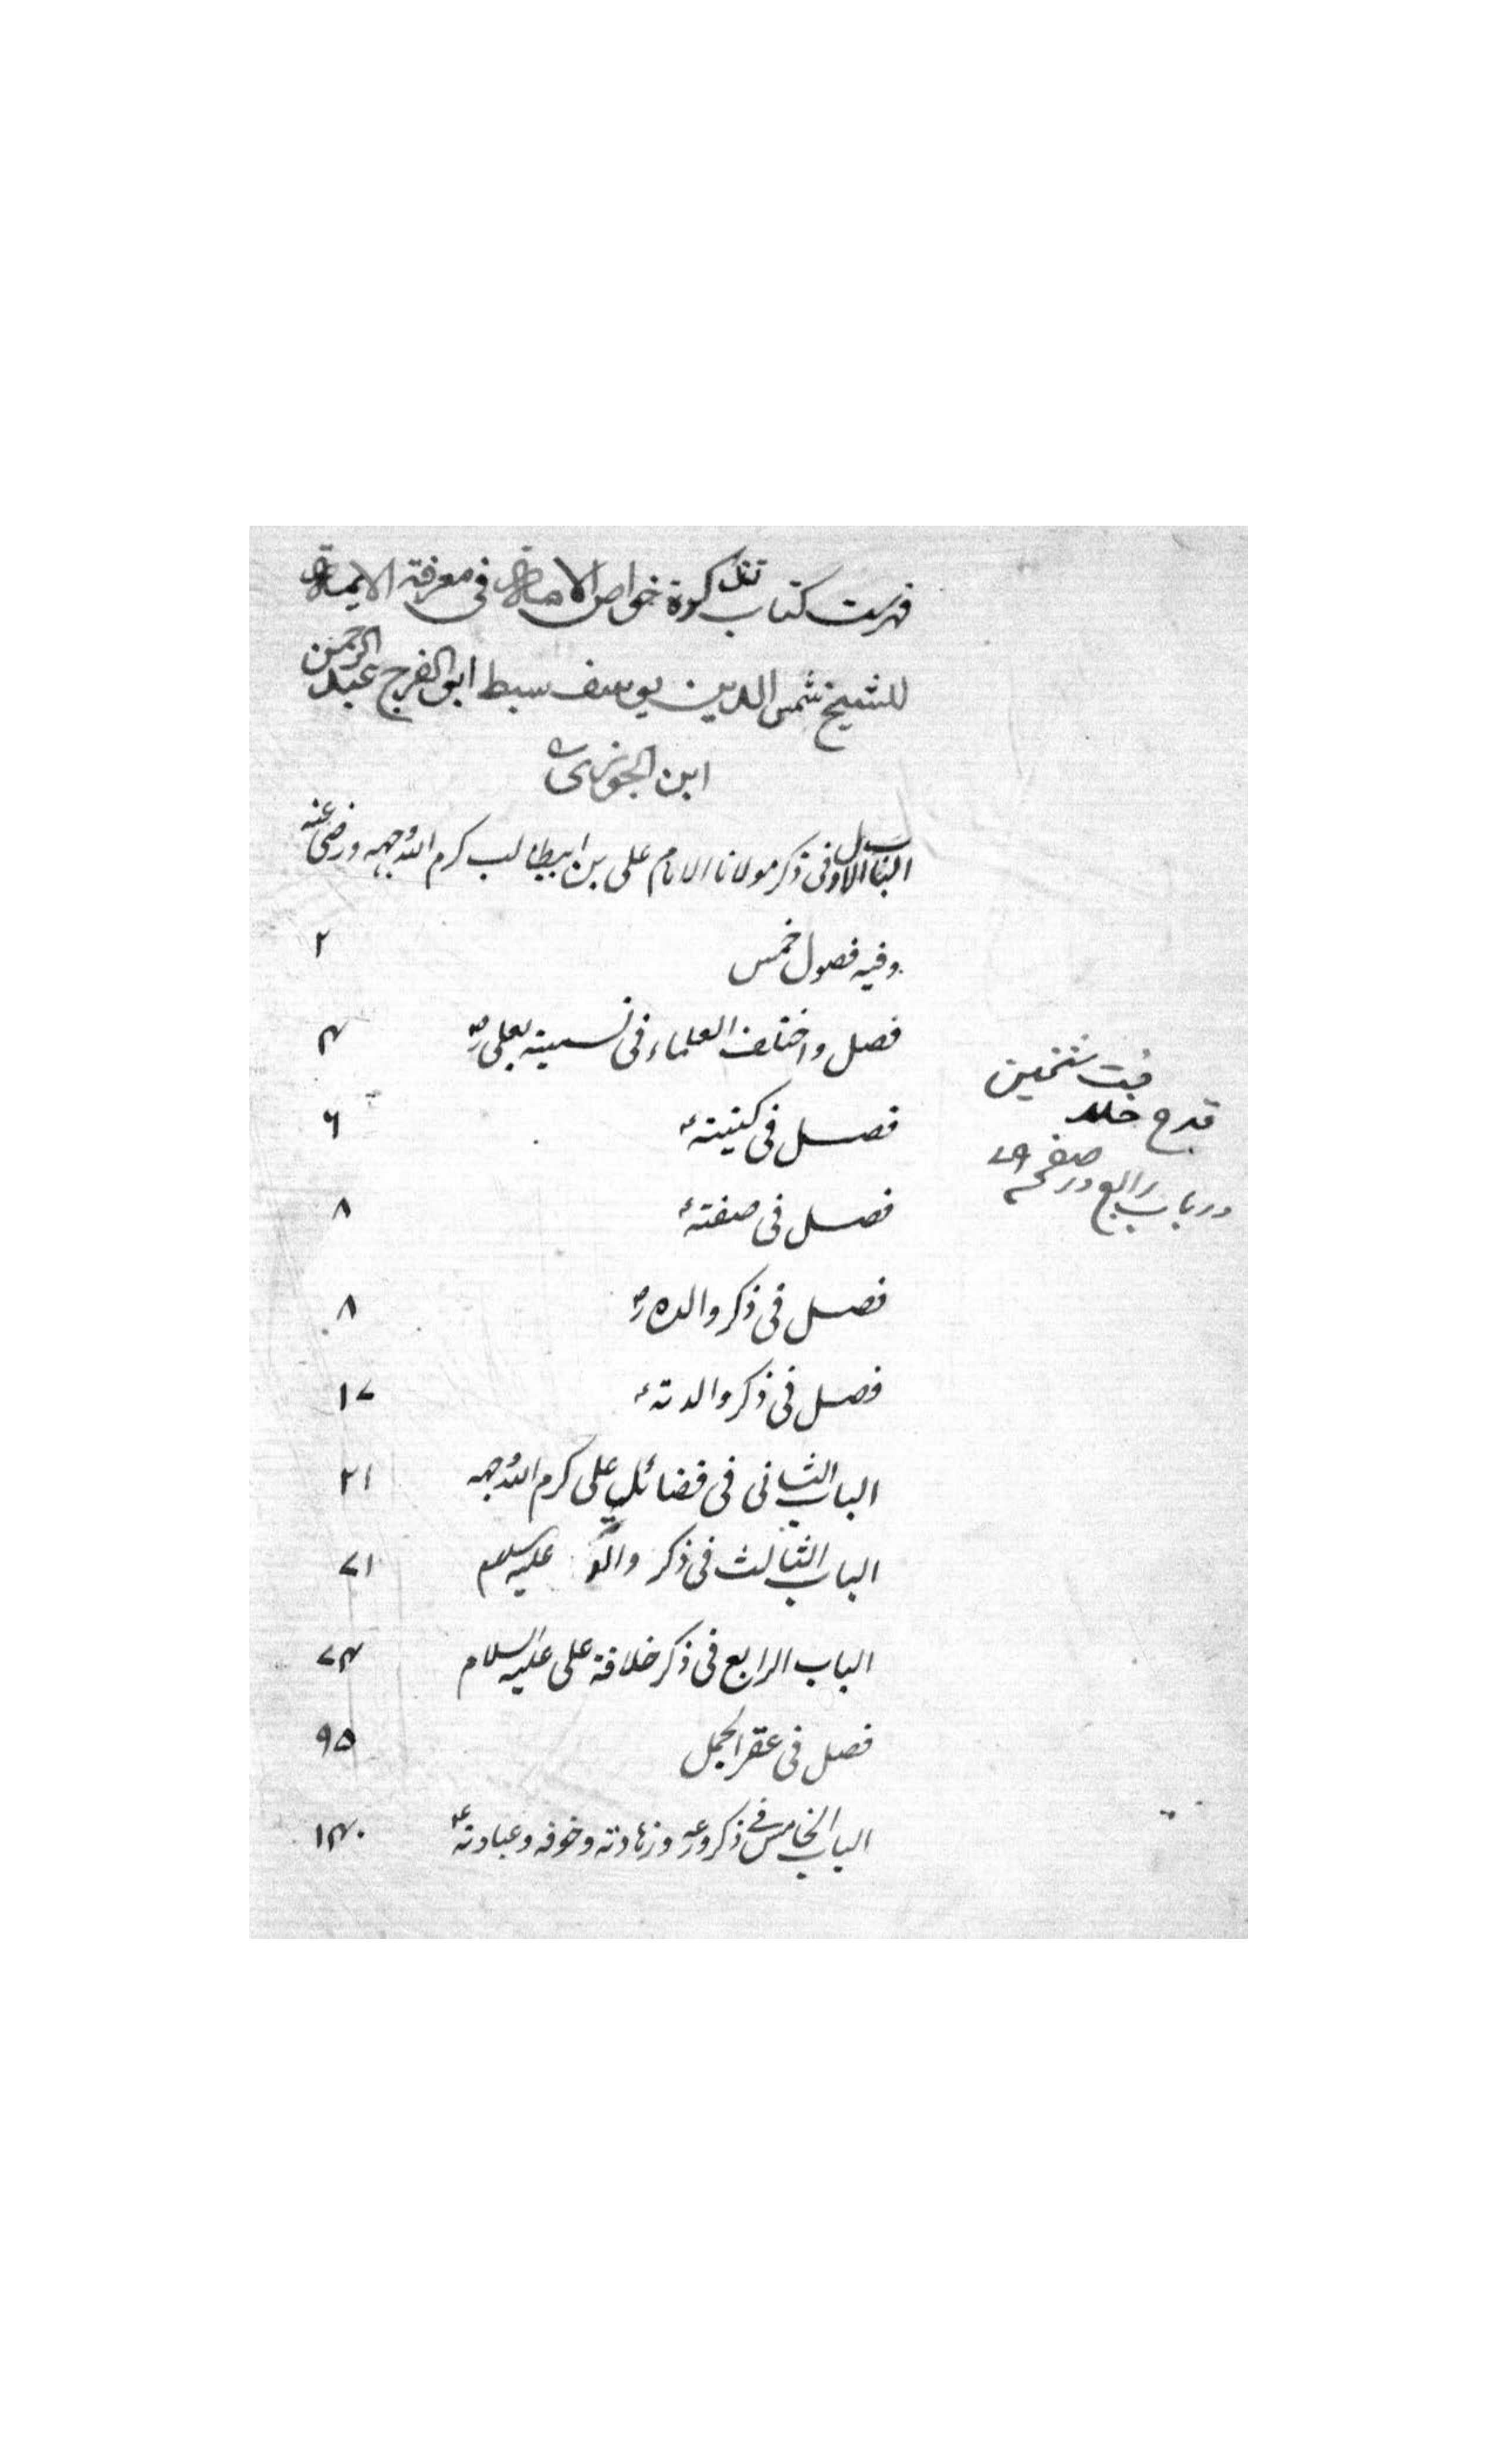 فهرست كتاب تذكرة خواص الامة فى معرفة الايمة
للشيخ شمس الدين يوسف سبط ابو الفرج عبد الرحمن
ابن الجوزى
الباب الاول فى ذكر مولانا الامام على بن ابيطالب كرم الله وجهه ورضى عنه
وفيه فصول خمس ٢
فصل واختلف العلماء فى تسميته بعلى رض ۴
فصل فى كنيته ٦
فصل فى صفته ٨
فصل فى ذكر والده رض ٨
فصل فى ذكر والدته ١٧
الباب الثانى فى فضائل على كرم الله وجهه ٢١
الباب الثالث فى ذكر عليه السلام ٧١
الباب الرابع فى ذكر خلافة على عليه السلام ٧۴
فصل فى عقر الجمل ٩۵
الباب الخامس فى ذكر ورعه وزهادته وخوفه وعبادته ١۴٠
قدح
در باب رابع در صفحه